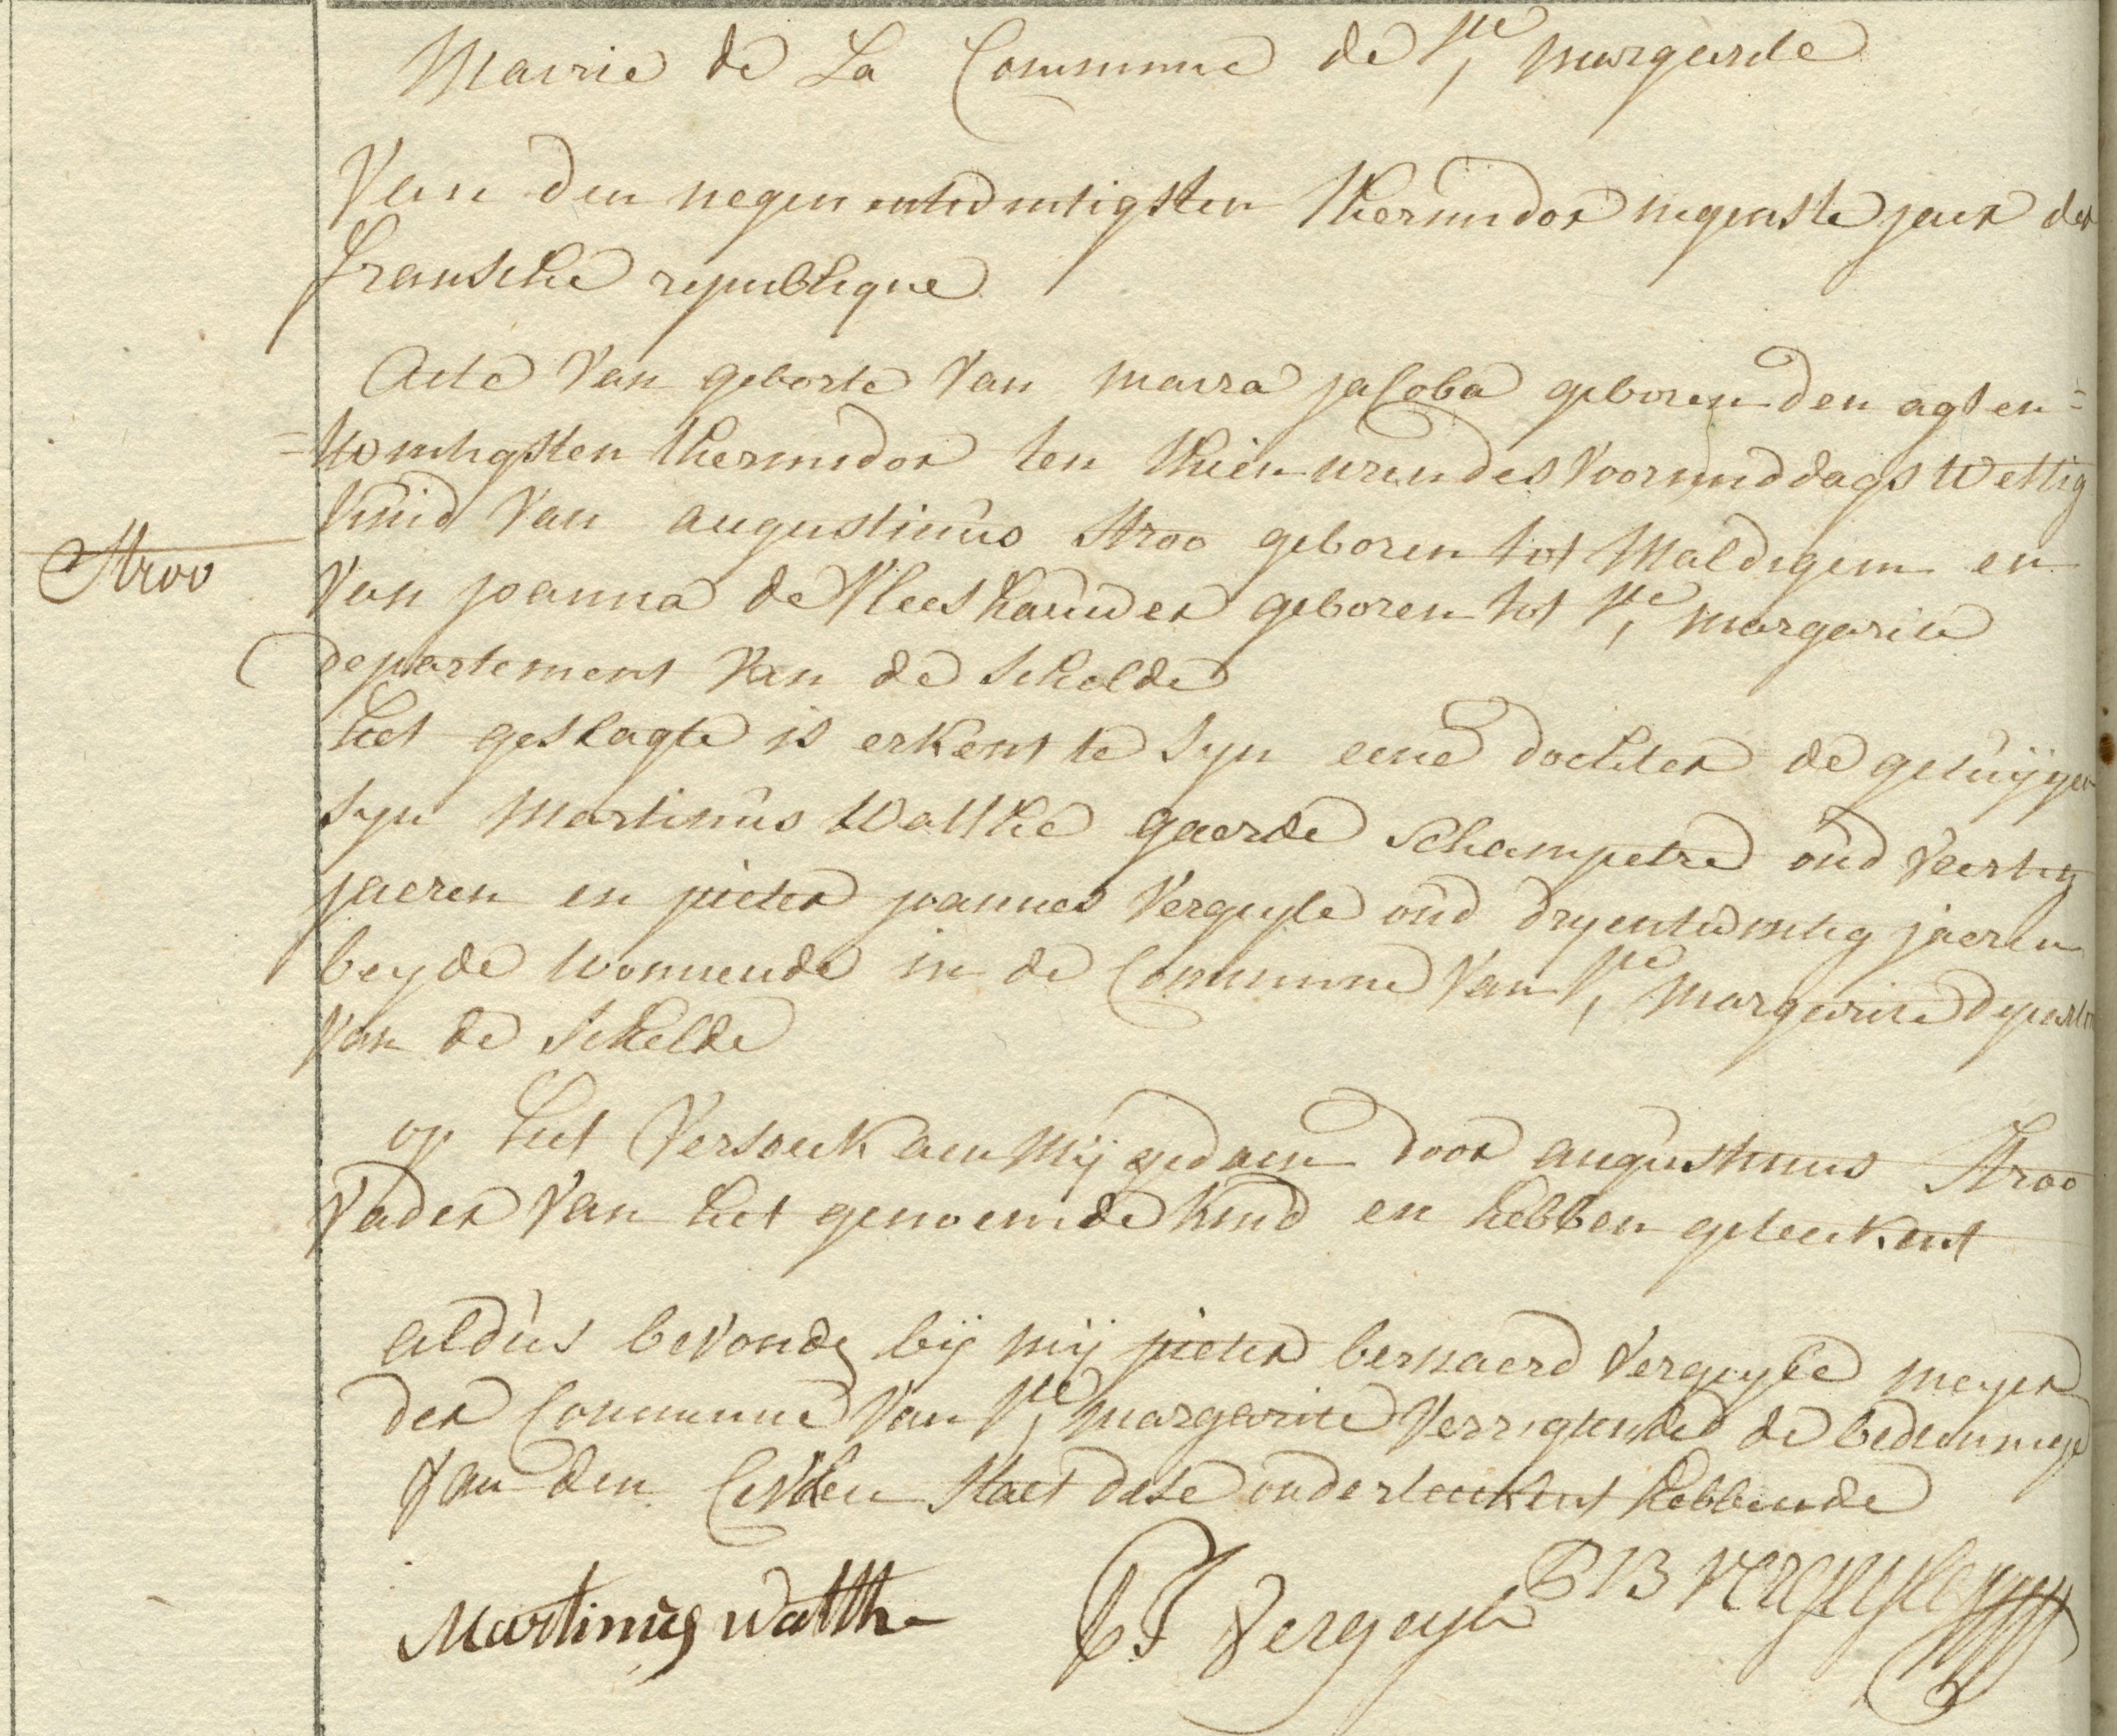 Mairie de La Commune de Ste Margarite
Van den negen entwintigsten thermidor negenste jaer der
fransche republique
Acte Van geborte Van maria jacoba geboren den agt en=
=twintigsten thermidor ten thien uren des voormiddags wettig
kind Van augustinus Stroo geboren tot Maldigem en
Stroo
Van joanna de Vleeshauwer geboren tot Ste margarite
departement Van de schelde
het geslagte is erkent te syn eene dochter de getuijgen
syn Martinus Watthe gaerde schampetre oud Veertig
jaeren en pieter joannes Vergeyle oud dryentwintig jaeren
beyde woonende in de Commune Van Ste Margarite
Van de Schelde
op het Versoek aen Mij gedaen door augustinus Stroo
Vader Van het genoemde kind en hebben geteekent
aldus bevonden bij mij pieter bernaerd Vergeyle meyer
der Commune Van Ste margarite Verrigtende de bedieninge
Van den Civilen staet dese onderteekent hebbende
Martinus Watthe
PJ Vergeyle
PB Vergeyle